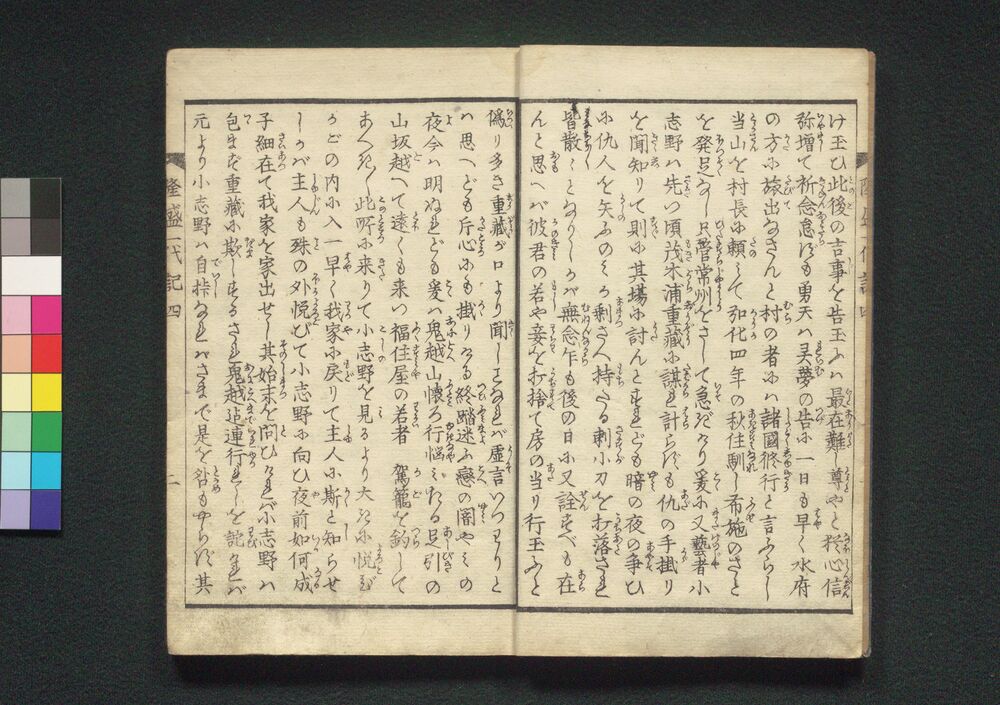 け玉ひ此後の吉事を告玉ふハ最在難し尊やと猶心信
弥増て祈念怠らず勇天ハ灵夢の告ふ一日も早く水府
の方ふ旅出なさんと村の者ふハ諸國修行と言ふらし
当山を村長ふ頼ミて弘化四年の秋住馴し布施のさと
を発足なし只管常州をさして急ぎけり爰ふ又藝者小
志野ハ先つ頃茂木浦重藏ふ謀を計らずも仇の手掛り
を聞知りて則ふ其場ふ討んとすれども暗の夜の争ひ
ふ仇人を失ふのミか剰さへ持たる刺小刀を打落され
皆散〻となりしかバ無念乍も後の日ふ又詮すべも在
んと思へバ彼君の若や妾を打捨て房の当り行玉ふと
偽り多き重藏が口より聞しことなれバ虚言いつわりと
ハ思へども斤心ふも掛りける終踏迷ふ戀の闇やミの
夜今ハ明ぬれども爰ハ鬼越山懐ろ行悩ミたる足引の
山坂越へて遠くも来い福住屋の若者 駕籠を釣して
まへきたり此所ふ来りて小志野を見るより大きふ悦び
かごの内ふ入一早く我家ふ戻りて主人ふ斯と知らせ
しかバ主人も殊の外悦びて小志野ふ向ひ夜前如何成
子細在て我家を家出せし其始末を問ひけれバ小志野ハ
包まず重藏ふ欺しすかされ鬼越迄連行れしを詫けれバ
元より小志野ハ自拵なれバさまで是を咎もやらず其
隆盛一代記四
二